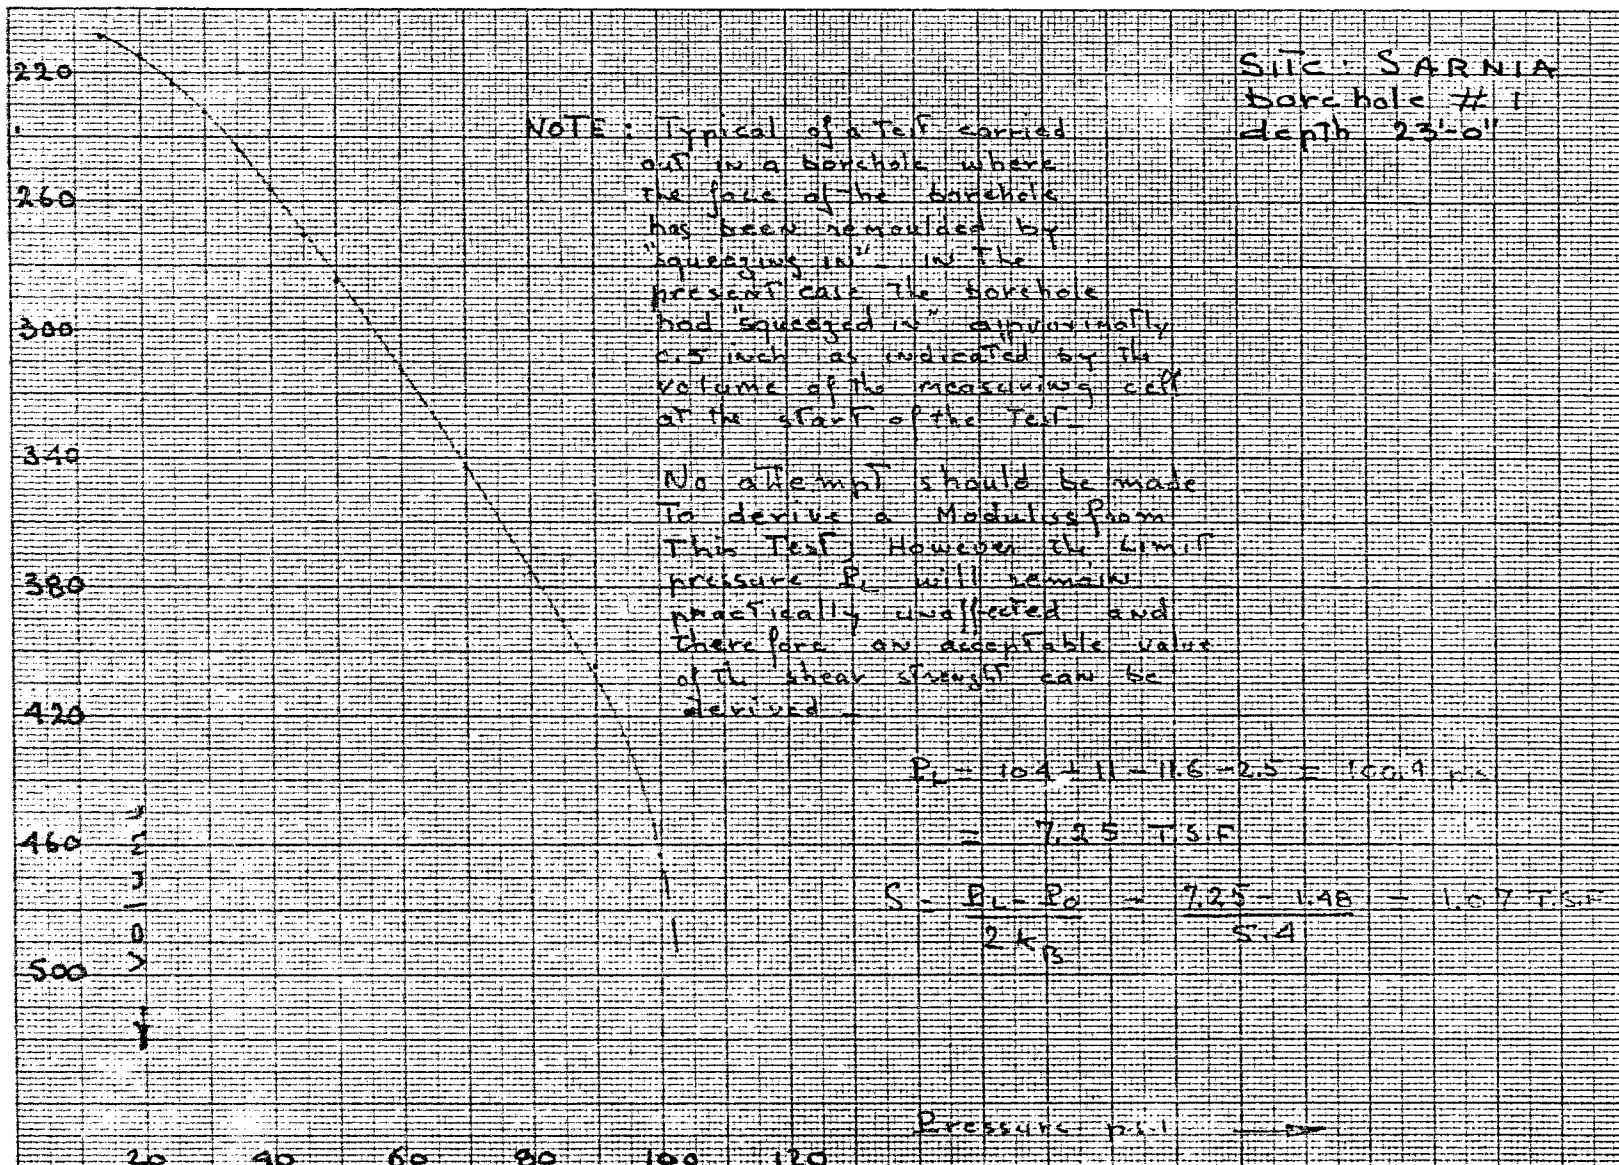 SITE: SARNIA
borehole # 1
depth 23'-0"
NOTE: Typical of a Test carried
out in a borehole where
the face of the borehole
has been remoulded by
"squeezing in" - in the
present case the borehole
had "squeezed in"
0.5 inch as indicated by the
volume of the measuring cell
at the start of the Test-
No attempt should be made
To derive a Modulus from
This Test. However the Limit
pressure PL will remain
practically unaffected and
therefore an acceptable value
of the shear can be
derived -
PL = 104 - 11 - 2.5 = 100.9
= 7.25 T.S.F
S = PL - Po = 7.25 - 1.48 = 1.07 T.S.F
2 KB 5.4
220
260
300
340
380
420
460
500
Volume
Pressure p.s.i
20 40 60 80 100 120